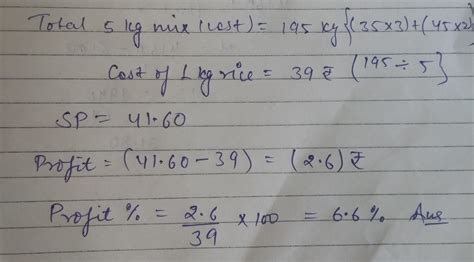 Total 5 kg mix (cost) = 195 kg {(35×3)+(45×2)
Cost of 1 kg rice = 39 ₹ (195 ÷ 5)
SP = 41.60
Profit = (41.60 - 39) = (2.6) ₹
Profit % = 2.6/39 × 100 = 6.6 % Ans